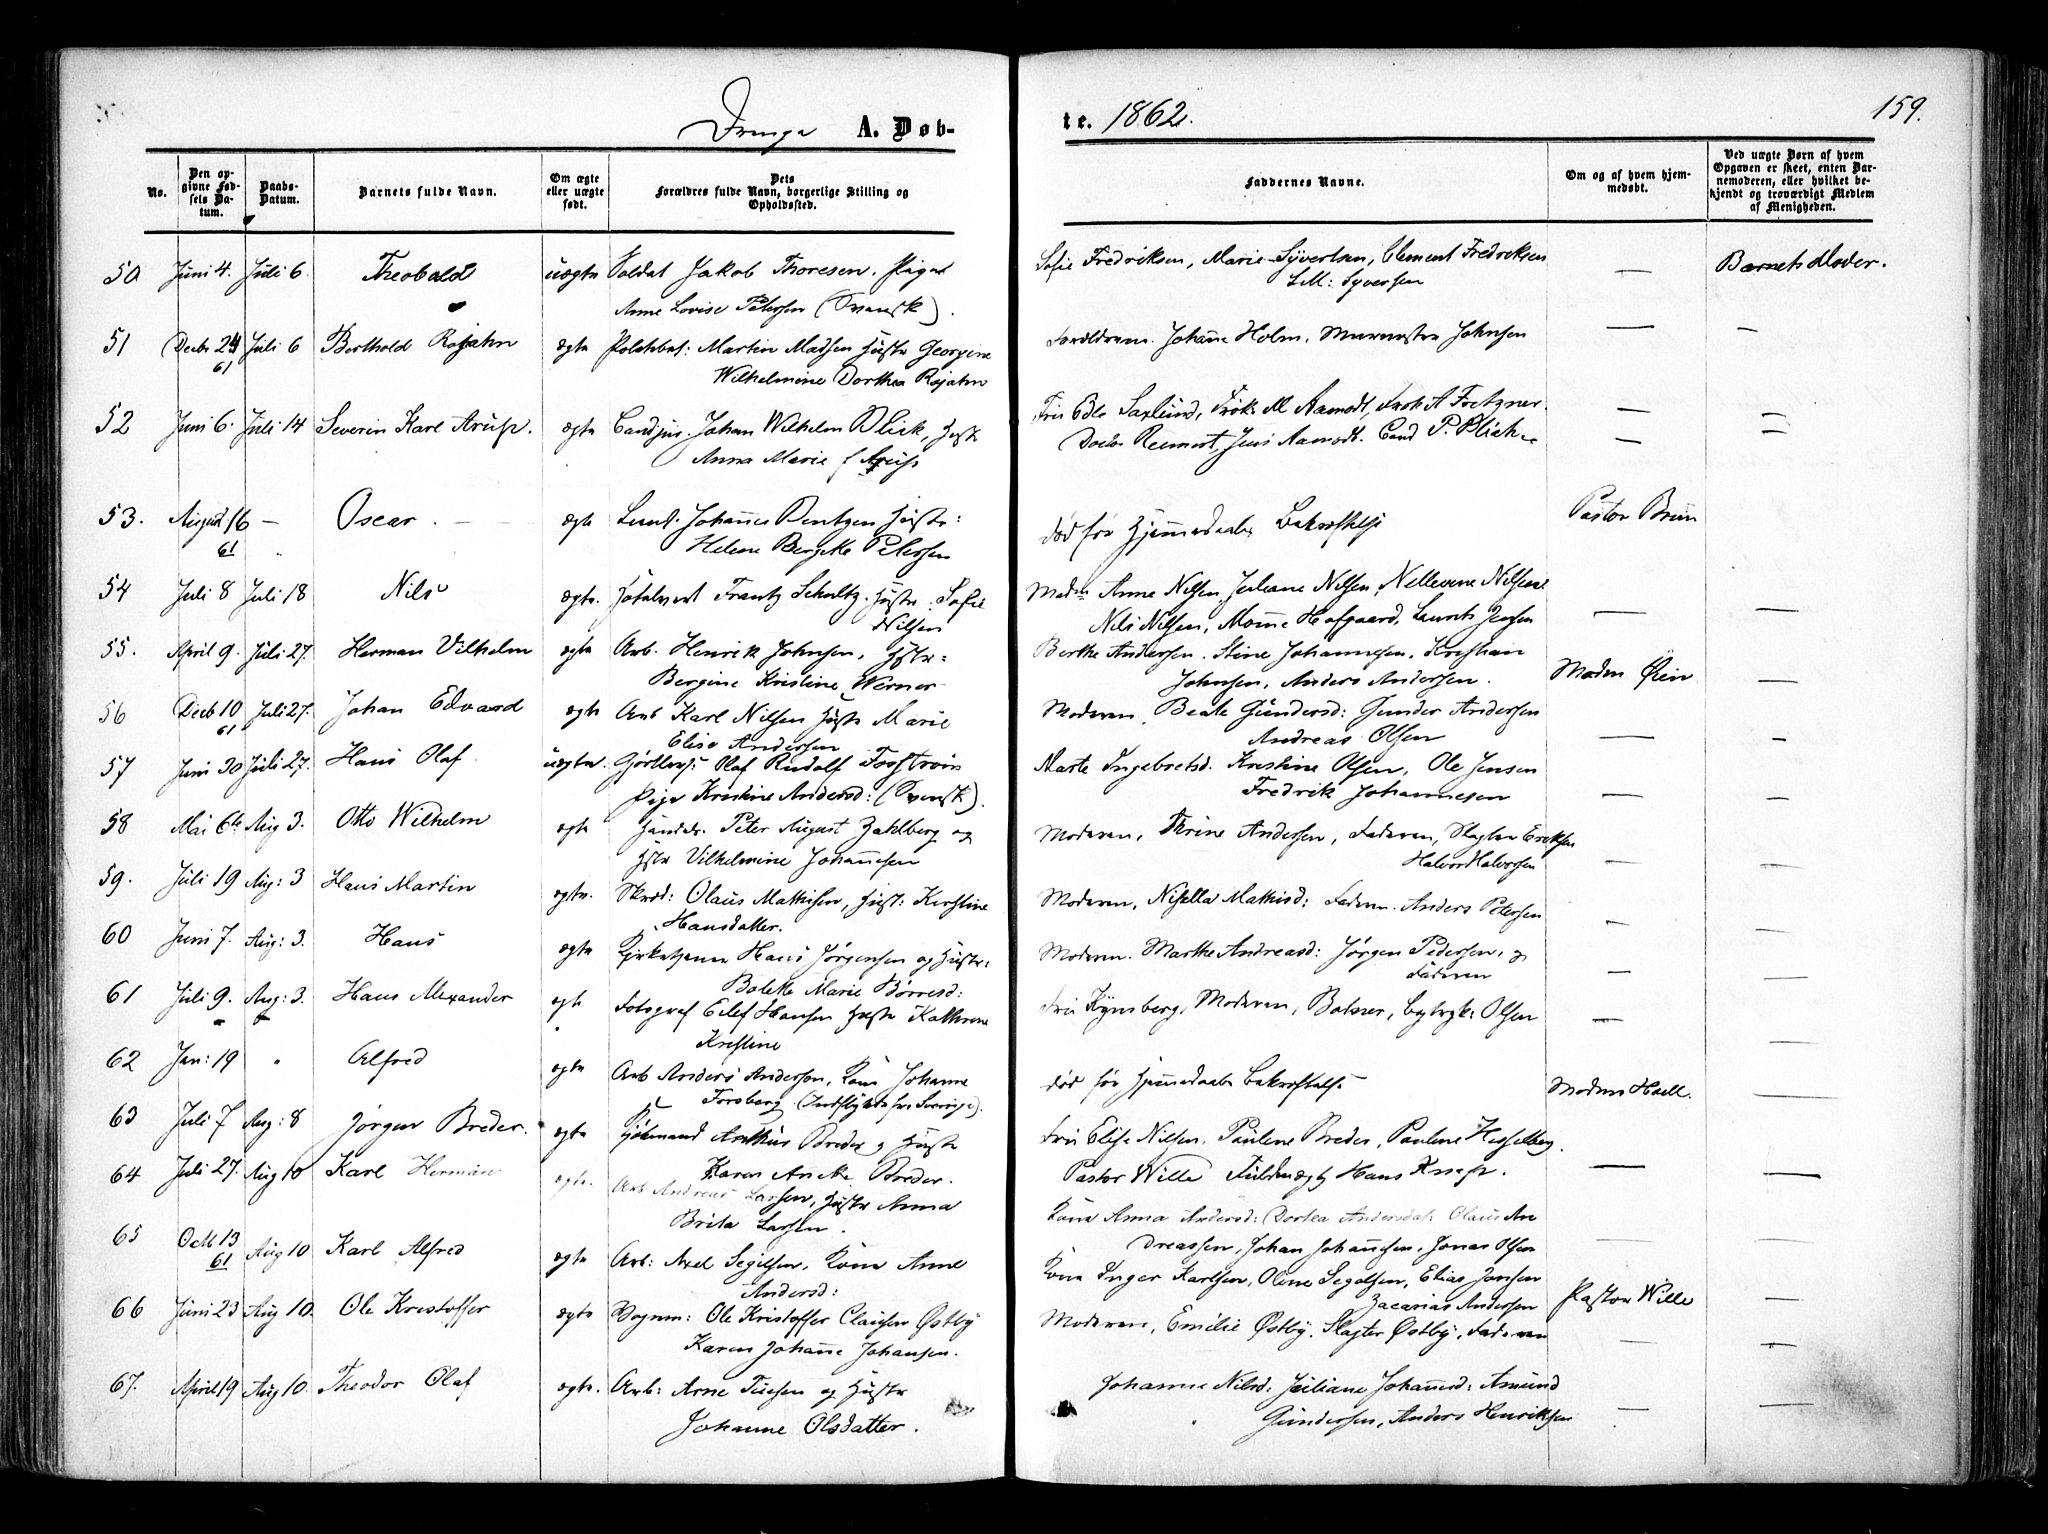 Drenge A. Døb-
te. 1862.
159.
No.
Den op-
givne Fød-
sels Da-
tum.
Daabs-
Datum.
Barnets fulde Navn.
Om ægte
eller uægte
født.
Dets
Forældres fulde Navn, borgerlige Stilling og
Opholdssted.
Faddernes Navne.
Om og af hvem hjem-
medøbt.
Ved uægte Børn af hvem
Opgaven er skeet, enten Bar-
nemoderen, eller hvilket be-
kjendt og troværdigt Medlem
af Menigheden.
50 Juni 4. Juli 6. Theobald uægte Soldat Jakob Thoresen. Pige Sofie Fredriksen, Marie Syvertsen, Clement Fredriksen — Barnets Moder.
Anne Lovise Petersen (Svensk). Syversen
51 Decbr 24 Juli 6 Berthold Rojahn ægte Martin Madsen Hustr Georgine Johanne Holm, Murmester Johnsen — —
61 Wilhelmine Dorthea Rojahn
52 Juni 6. Juli 14 Severin Karl Arup. ægte Candjur. Johan Wilhelm Blick, Hustr Fru Edle Saxlund, Frøk: M Aamodt, Frøk A Fretzner. — —
Anna Marie f Arup Jens Aamodt. Cand P. Blick — —
53. August 16 — Oscar. — ægte Johannes Bentzen Hustr: død før Hjemmedaabs Bekræftelse Pastor Brun
61 Helene Bergitte Petersen
54 Juli 8 Juli 18 Nils ægte. Frantz Schultz. Hustr: Sofie Anne Nilsen, Juliane Nilsen,
Nilsen Nils Nilsen, Hofgaard, Jensen — —
55. April 9. Juli 27. Herman Vilhelm ægte Arb. Henrik Johnsen, Hstr: Berthe Andersen. Stine Johannesen, Kristian
Bergine Kristine Werner Johnsen, Anders Andersen. —
56 Decb 10 Juli 27. Johan Edvard ægte Arb Karl Nilsen Hustr Marie Moderen, Beate Gundersd: Gunder Andersen
61 Elise Andersen Andreas Olsen — —
57 Juni 30 Juli 27. Hans Olaf uægte. Olaf Rudolf Marte Ingebretsd. Kristine Olsen, Ole Jensen
Pige Kristine Andersd: (Svensk). Fredrik Johannesen — —
58 Mai 6te Aug 3. Otto Wilhelm ægte Peter August Zahlberg og Moderen, Thrine Andersen, Faderen, Eriksen
Hstr Vilhelmine Johannesen Halvor Halvorsen —
59. Juli 19 Aug: 3 Hans Martin ægte. Skræd: Olaus Mathisen, Hust: Kirstine Moderen, Mathisd: Faderen. Anders Petersen
Hansdatter. — —
60 Juni 7. Aug: 3. Hans ægte Hans Jørgensen og Hustr: Moderen. Marthe Andreasd: Jørgen Pedersen, og
Bolette Marie Børresd: Faderen — —
61 Juli 9. Aug: 3. Hans Alexander ægte Fotograf Eilef Hansen Hustr Kathrine Fru Moderen, Olsen —
Kristine —
62 Jan: 19 " Alfred ægte Arb Anders Andersen, Kone Johanne død før Hjemmedaabs Bekræftelse
Forsberg (Indflyttede fra Sverige). —
63 Juli 7 Aug: 8 Jørgen Breder. ægte Kjøbmand Breder og Hustr Fru Elise Nilsen. Pauline Breder, Pauline Hesselberg.
Karen Breder. Pastor Wille Hans — —
64 Juli 27. Aug 10 Karl Herman ægte. Arb Andreas Larsen, Hustr Anna Kone Anna Andersd: Dortea Andersdat: Olaus An
Brita Larsen. dreassen, Johan Johannesen, Jonas Olsen — —
65 Octb 13 Aug 10 Karl Alfred ægte Arb: Axel Segelsen, Kone Anne Kone Inger Karlsen, Oline Segelsen, Elias Jonsen Pastor Wille —
61 Andersd: Zacarias Andersen
66 Juni 23 Aug 10. Ole Kristoffer ægte Vognm: Ole Kristoffer Clausen Østby Moderen, Emilie Østby, Slagter Østby, Faderen — —
Karen Johanne Johansen.
67. April 19 Aug 10. Theodor Olaf ægte. Arb: Arne og Hustr Johanne Nilsd: Juliane Johannesd: Amund — —
Johanne Olsdatter. Gundersen, Anders Henriksen